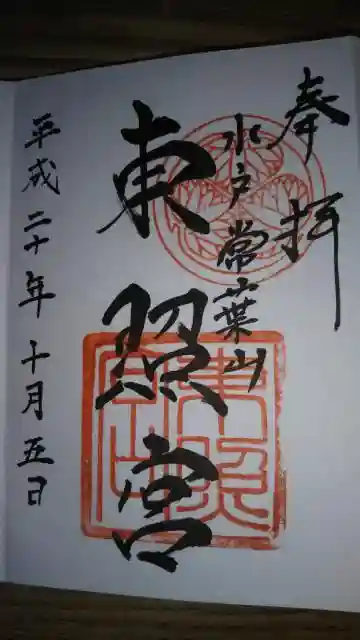 奉拝
水戸常葉山
東照宮
平成二十年十月五日